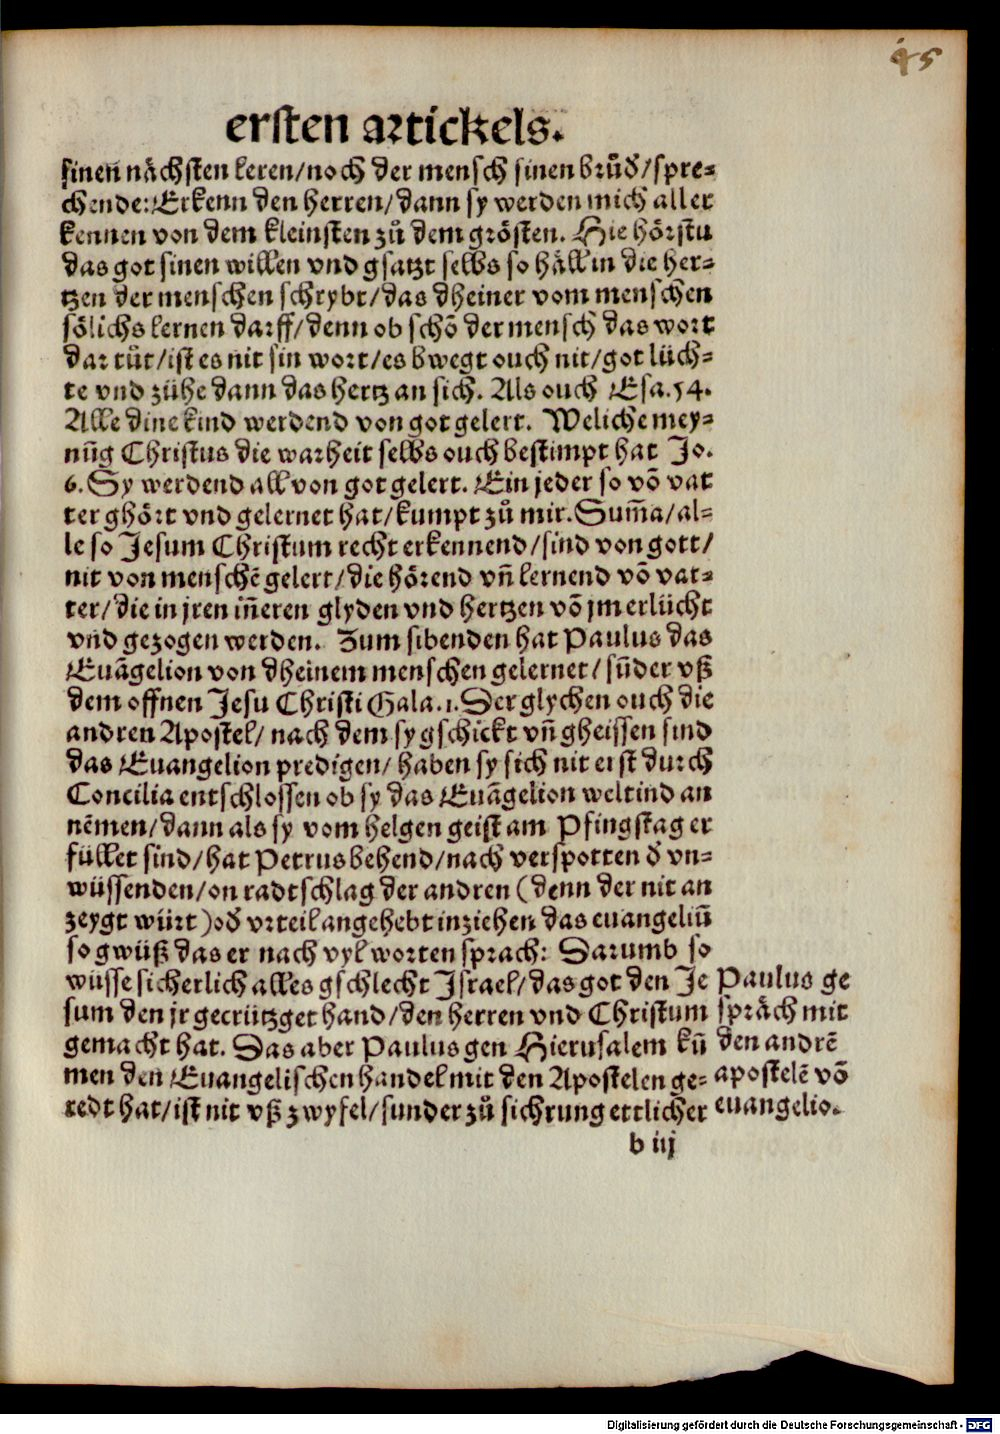 45
ersten artickels.
sinen nächsten leren/noch der mensch sinen brůď/spre-
chende: Erkenn den herren/dann sy werden mich all er
kennen von dem kleinsten zů dem grösten. Hie hörstu
das got sinen willen vnd gsatzt selbs so häll in die her-
tzen der menschen schrybt/das dheiner vom menschen
sölichs lernen darff/denn ob schō der mensch das wort
dar tůt/ist es nit sin wort/es bwegt ouch nit/got lüch-
te vnd zühe dann das hertz an sich. Als ouch Esa.54.
Alle dine kind werdend von got gelert. Weliche mey-
nūg Christus die warheit selbs ouch bestimpt hat Jo.
6. Sy werdend all von got gelert. Ein jeder so vō vat
ter ghört vnd gelernet hat/kumpt zů mir. Sum̄a/al-
le so Jesum Christum recht erkennend/sind von gott/
nit von menschē gelert/die hörend vn̄ lernend vō vat-
ter/die in jren in̄eren glyden vnd hertzen vō jm erlücht
vnd gezogen werden. Zum sibenden hat Paulus das
Euāgelion von dheinem menschen gelernet/sūder vß
dem offnen Jesu Christi Gala.1. Der glychen ouch die
andren Apostel/nach dem sy gschickt vn̄ gheissen sind
das Euangelion predigen/haben sy sich nit erst durch
Concilia entschlossen ob sy das Euāgelion weltind an
nēmen/dann als sy vom helgen geist am Pfingstag er
füllet sind/hat Petrus behend/nach verspotten ď vn-
wüssenden/on radtschlag der andren (denn der nit an
zeygt würt) oď vrteil angehebt inziehen das euangeliū
so gwüß das er nach vyl worten sprach: Darumb so
wüsse sicherlich alles gschlecht Israel/das got den Je
sum den jr gecrützget hand/den herren vnd Christum
gemacht hat. Das aber Paulus gen Hierusalem kū
men den Euangelischen handel mit den Apostelen ge-
redt hat/ist nit vß zwyfel/sunder zů sichrung ettlicher
Paulus ge
spräch mit
den andrē
apostelē vō
euangelio.
b iij
Digitalisierung gefördert durch die Deutsche Forschungsgemeinschaft - DFG